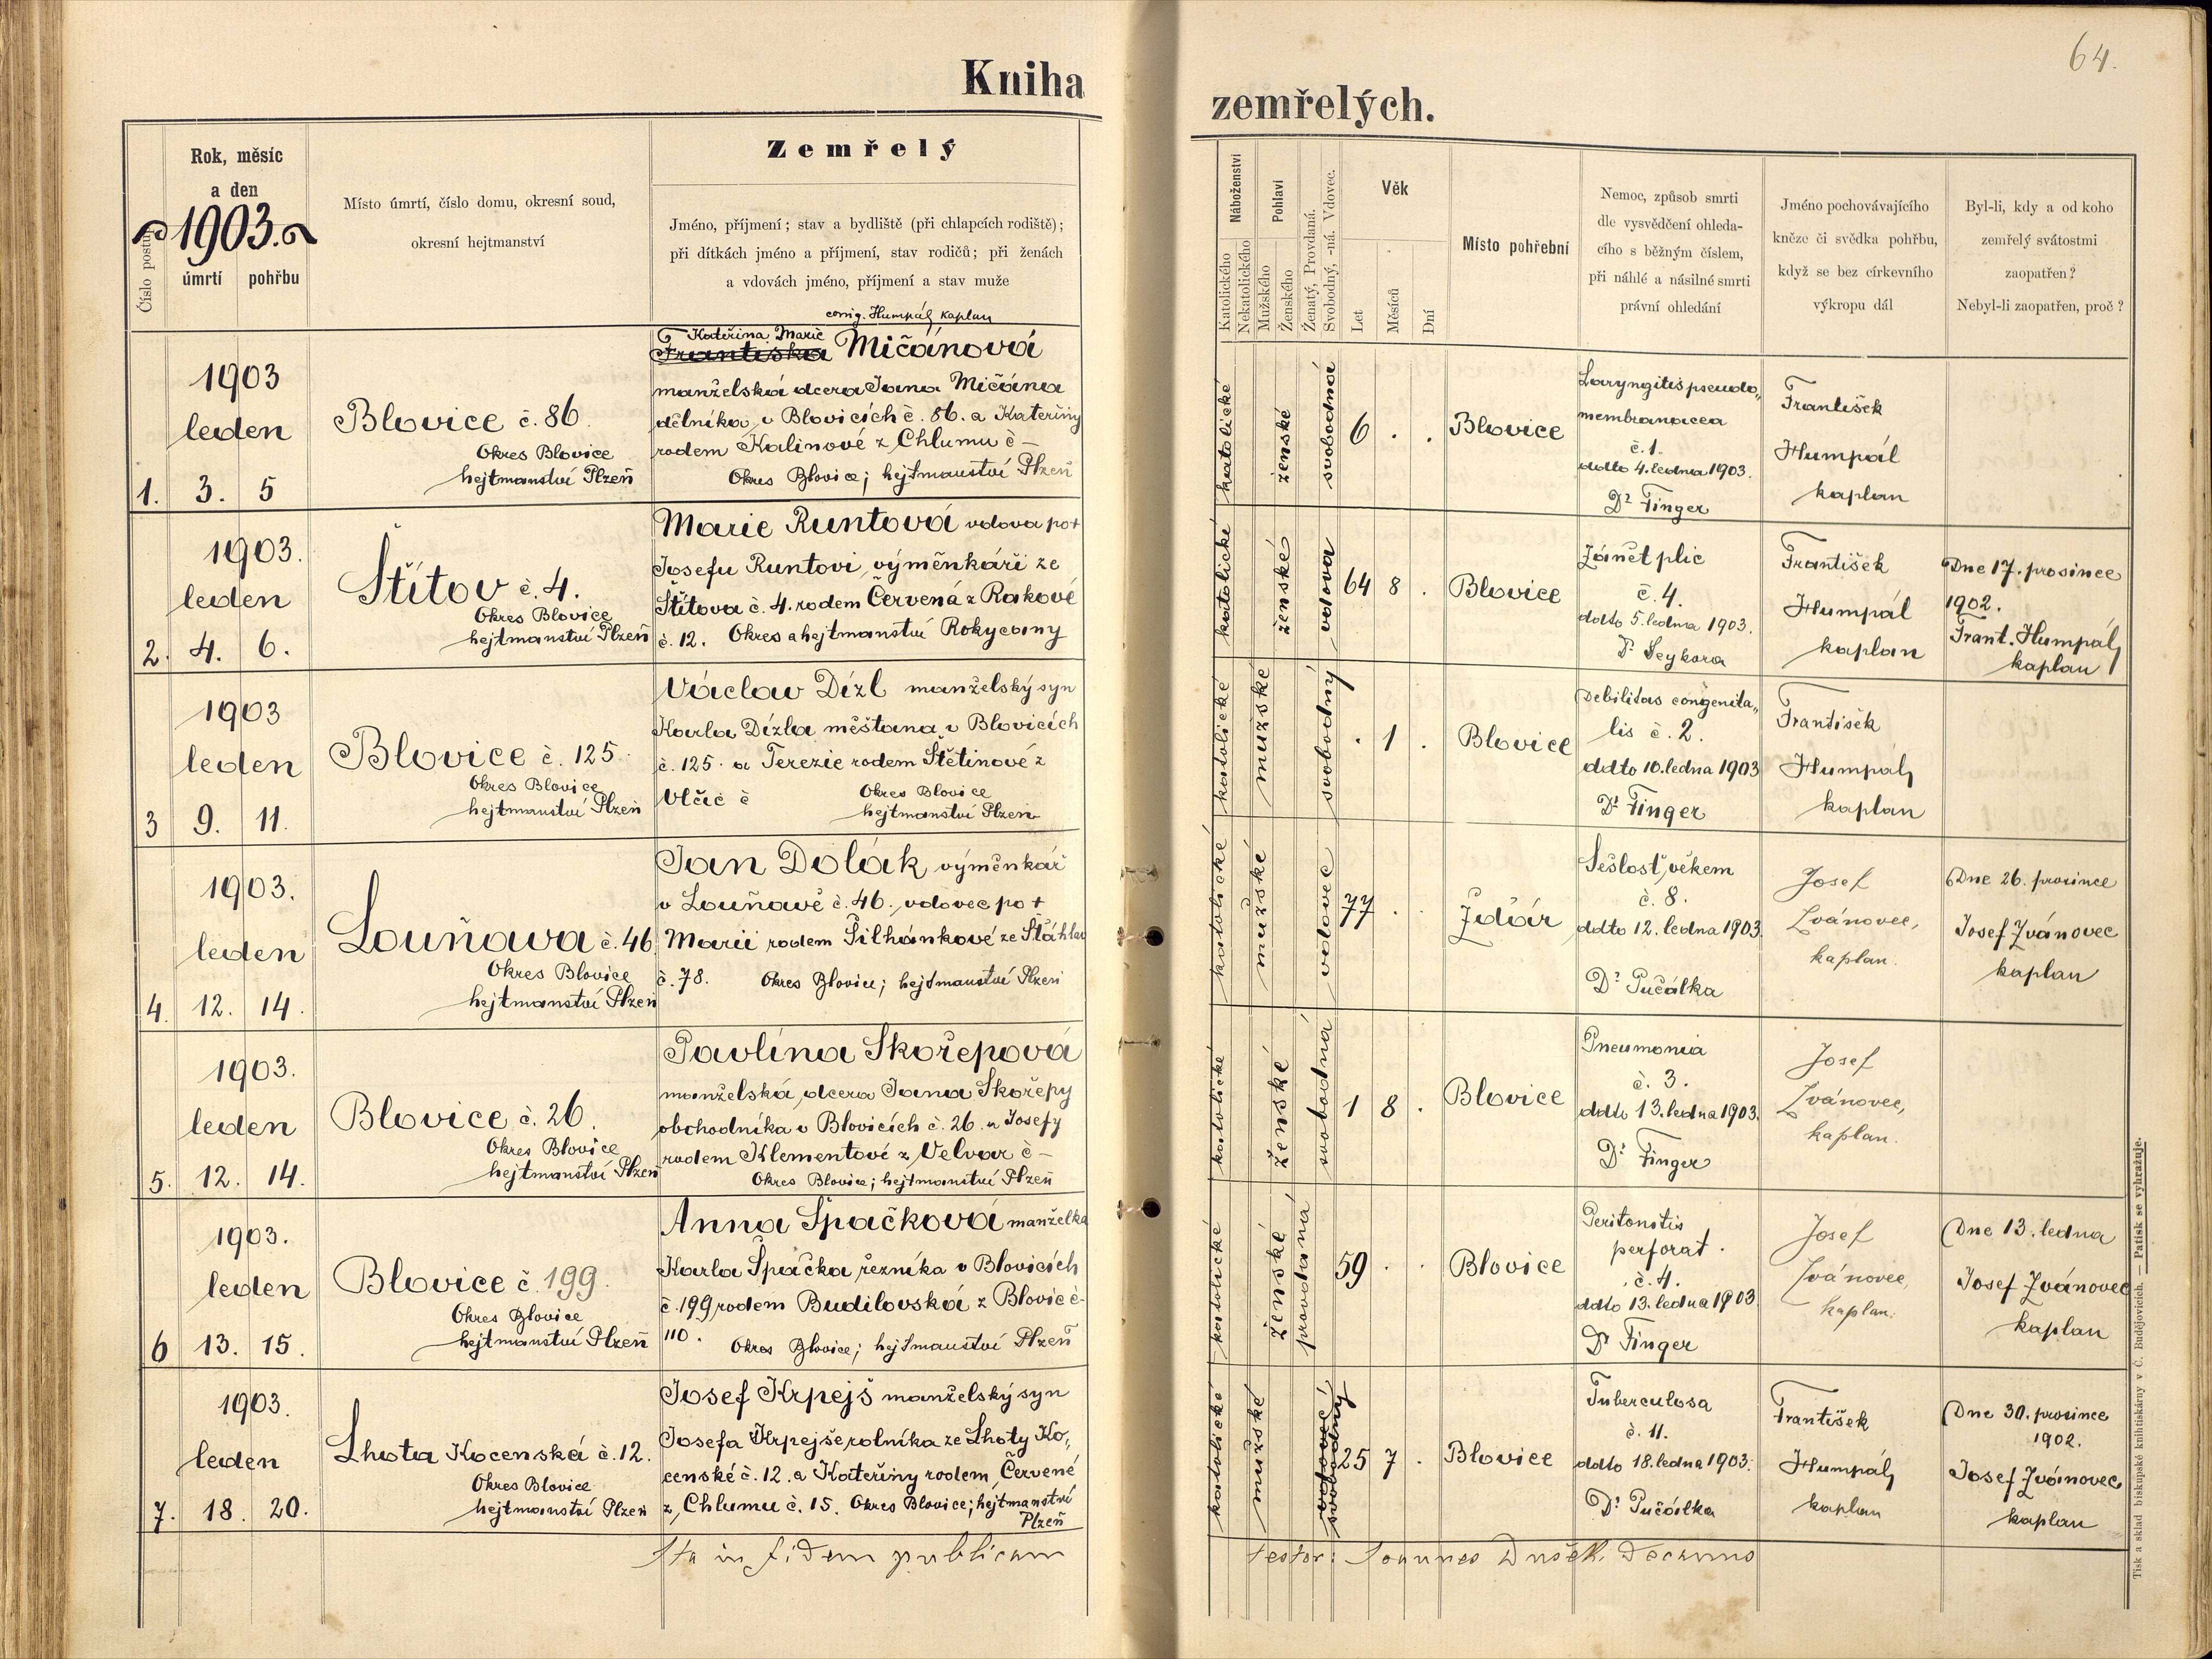 64.
Kniha zemřelých.
Číslo postu
Rok, měsíc
a den
1903.
úmrtí pohřbu
Místo úmrtí, číslo domu, okresní soud,
okresní hejtmanství
Zemřelý
Jméno, příjmení; stav a bydliště (při chlapcích rodiště);
při dítkách jméno a příjmení, stav rodičů; při ženách
a vdovách jméno, příjmení a stav muže
Náboženství
Katolického
Nekatolického
Pohlaví
Mužského
Ženského
Ženatý, Provdaná.
Svobodný, -ná. Vdovec.
Věk
Let
Měsíců
Dní
Místo pohřební
Nemoc, způsob smrti
dle vysvědčení ohleda-
cího s běžným číslem,
při náhlé a násilné smrti
právní ohledání
Jméno pochovávajícího
kněze či svědka pohřbu,
když se bez církevního
výkropu dál
Byl-li, kdy a od koho
zemřelý svátostmi
zaopatřen?
Nebyl-li zaopatřen, proč?
1.
1903
leden
3. 5
Blovice č. 86.
Okres Blovice
hejtmanství Plzeň
corrig. Humpál kaplan
Kateřina Marie
Františka Mičánová
manželská dcera Jana Mičána
dělníka v Blovicích č. 86. a Kateřiny
rodem Kalinové z Chlumu č –
Okres Blovice; hejtmanství Plzeň
katolické
ženské
svobodná
6 . .
Blovice
Laryngitis pseudo„
membranacea
č. 1.
ddto 4. ledna 1903.
Dr Finger
František
Humpál
kaplan
2.
1903.
leden
4. 6.
Štítov č. 4.
Okres Blovice
hejtmanství Plzeň
Marie Runtová vdova po +
Josefu Runtovi, výměnkáři ze
Štítova č. 4. rodem Červená z Rakové
č. 12. Okres a hejtmanství Rokycany
katolické
ženské
vdova
64 8 .
Blovice
Zánět plic
č. 4.
ddto 5. ledna 1903.
Dr Seykora
František
Humpál
kaplan
Dne 17. prosince
1902.
Frant. Humpál
kaplan
3
1903
leden
9. 11.
Blovice č. 125.
Okres Blovice
hejtmanství Plzeň
Václav Dízl manželský syn
Karla Dízla měštana v Blovicích
č. 125. a Terezie rodem Štětinové z
Vlčic č
Okres Blovice
hejtmanství Plzeň
katolické
mužské
svobodný
. 1 .
Blovice
Debilitas congenita„
lis č. 2.
ddto 10. ledna 1903
Dr Finger
František
Humpál
kaplan
4.
1903.
leden
12. 14.
Louňava č. 46
Okres Blovice
hejtmanství Plzeň
Jan Dolák, výměnkář
v Louňavě č. 46., vdovec po +
Marii rodem Šilhánkové ze Štáhlav
č. 78. Okres Blovice; hejtmanství Plzeň
katolické
mužské
vdovec
77 . .
Ždár
Sešlosť věkem
č. 8.
ddto 12. ledna 1903.
Dr Pučálka
Josef
Ivánovec,
kaplan.
Dne 26. prosince
Josef Ivánovec
kaplan
5.
1903.
leden
12. 14.
Blovice č. 26.
Okres Blovice
hejtmanství Plzeň
Pavlína Skořepová
manželská dcera Jana Skořepy
obchodníka v Blovicích č. 26. a Josefy
rodem Klementové z Velvar č –
Okres Blovice; hejtmanství Plzeň
katolické
ženské
svobodná
1 8 .
Blovice
Pneumonia
č. 3.
ddto 13. ledna 1903.
Dr Finger
Josef
Ivánovec,
kaplan.
6
1903.
leden
13. 15.
Blovice č. 199.
Okres Blovice
hejtmanství Plzeň
Anna Špačková manželka
Karla Špačka řezníka v Blovicích
č. 199 rodem Budilovská z Blovic č-
110. Okres Blovice; hejtmanství Plzeň
katolické
ženské
provdaná
59 . .
Blovice
Peritonitis
perforat.
č. 4.
ddto 13. ledna 1903.
Dr Finger
Josef
Ivánovec,
kaplan.
Dne 13. ledna
Josef Ivánovec
kaplan
7.
1903.
leden
18. 20.
Lhota Kocenská č. 12.
Okres Blovice
hejtmanství Plzeň
Josef Krpejš manželský syn
Josefa Krpejše rolníka ze Lhoty Ko„
censké č. 12. a Kateřiny rodem Červené
z Chlumu č. 15. Okres Blovice; hejtmanství
Plzeň
katolické
mužské
svobodný
25 7 .
Blovice
Tuberculosa
č. 11.
ddto 18. ledna 1903.
Dr Pučálka
František
Humpál
kaplan
Dne 30. prosince
1902.
Josef Ivánovec
kaplan
Ita in fidem publicam testor: Joannes Dušek, Decanus
Tisk a sklad biskupské knihtiskárny v Č. Budějovicích. — Patisk se vyhražuje.